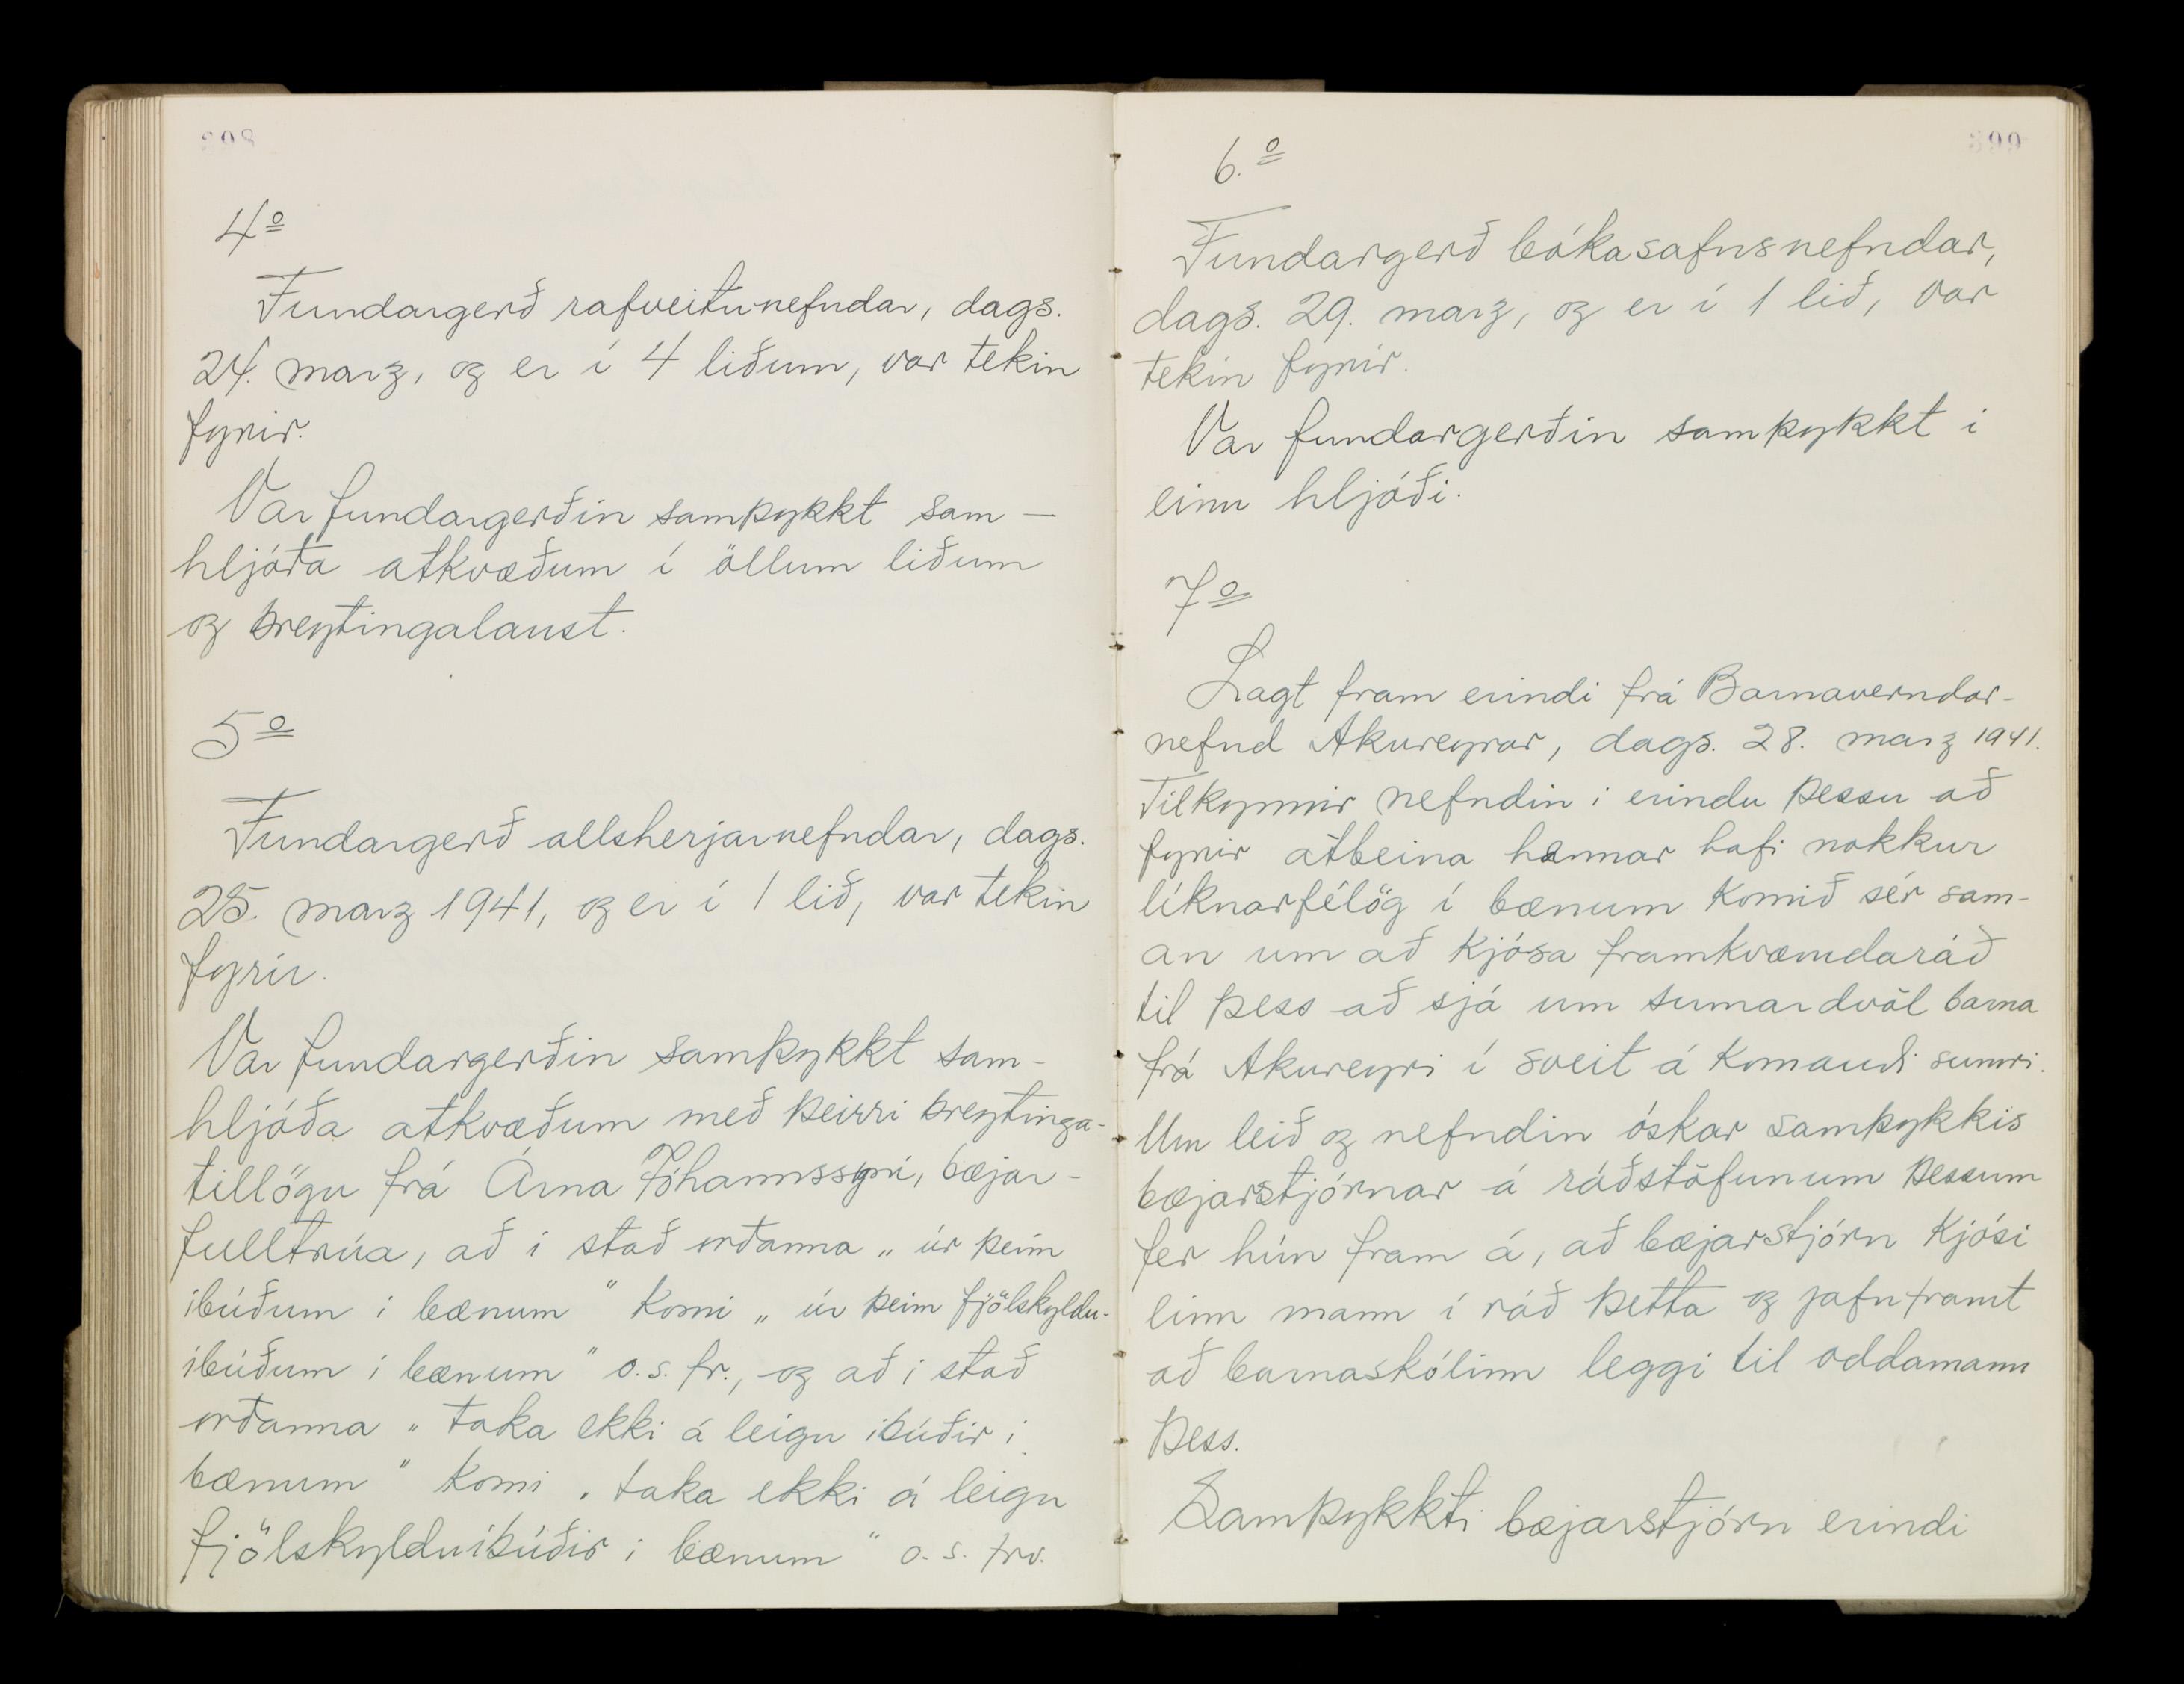 398
4º
Fundargerð rafveitunefndar, dags.
24. marz, og er í 4 liðum, var tekin
fyrir.
Var fundargerðin samþykkt sam-
hljóða atkvæðum í öllum liðum
og breytingalaust.
5º
Fundargerð allsherjarnefndar, dags.
25. marz 1941, og er í 1 lið, var tekin
fyrir.
Var fundargerðin samþykkt sam-
hljóða atkvæðum með þeirri breytinga-
tillögu frá Árna Jóhannssyni, bæjar-
fulltrúa, að í stað orðanna „úr þeim
íbúðum í bænum" komi „úr þeim fjölskyldu-
íbúðum í bænum" o.s.fr., og að í stað
orðanna „taka ekki á leigu íbúðir í
bænum" komi „taka ekki á leigu
fjölskylduíbúðir í bænum" o.s.frv.
399
6.º
Fundargerð bókasafnsnefndar,
dags. 29. marz, og er í 1 lið, var
tekin fyrir.
Var fundargerðin samþykkt í
einu hljóði.
7º
Lagt fram erindi frá Barnaverndar-
nefnd Akureyrar, dags. 28. marz 1941.
Tilkynnir nefndin í erindu þessu að
fyrir atbeina hennar hafi nokkur
líknarfélög í bænum komið sér sam-
an um að kjósa framkvæmdaráð
til þess að sjá um sumardvöl barna
frá Akureyri í sveit á komandi sumri.
Um leið og nefndin óskar samþykkis
bæjarstjórnar á ráðstöfunum þessum
fer hún fram á, að bæjarstjórn kjósi
einn mann í ráð þetta og jafnframt
að barnaskólinn leggi til oddamann
þess.
Samþykkti bæjarstjórn erindi